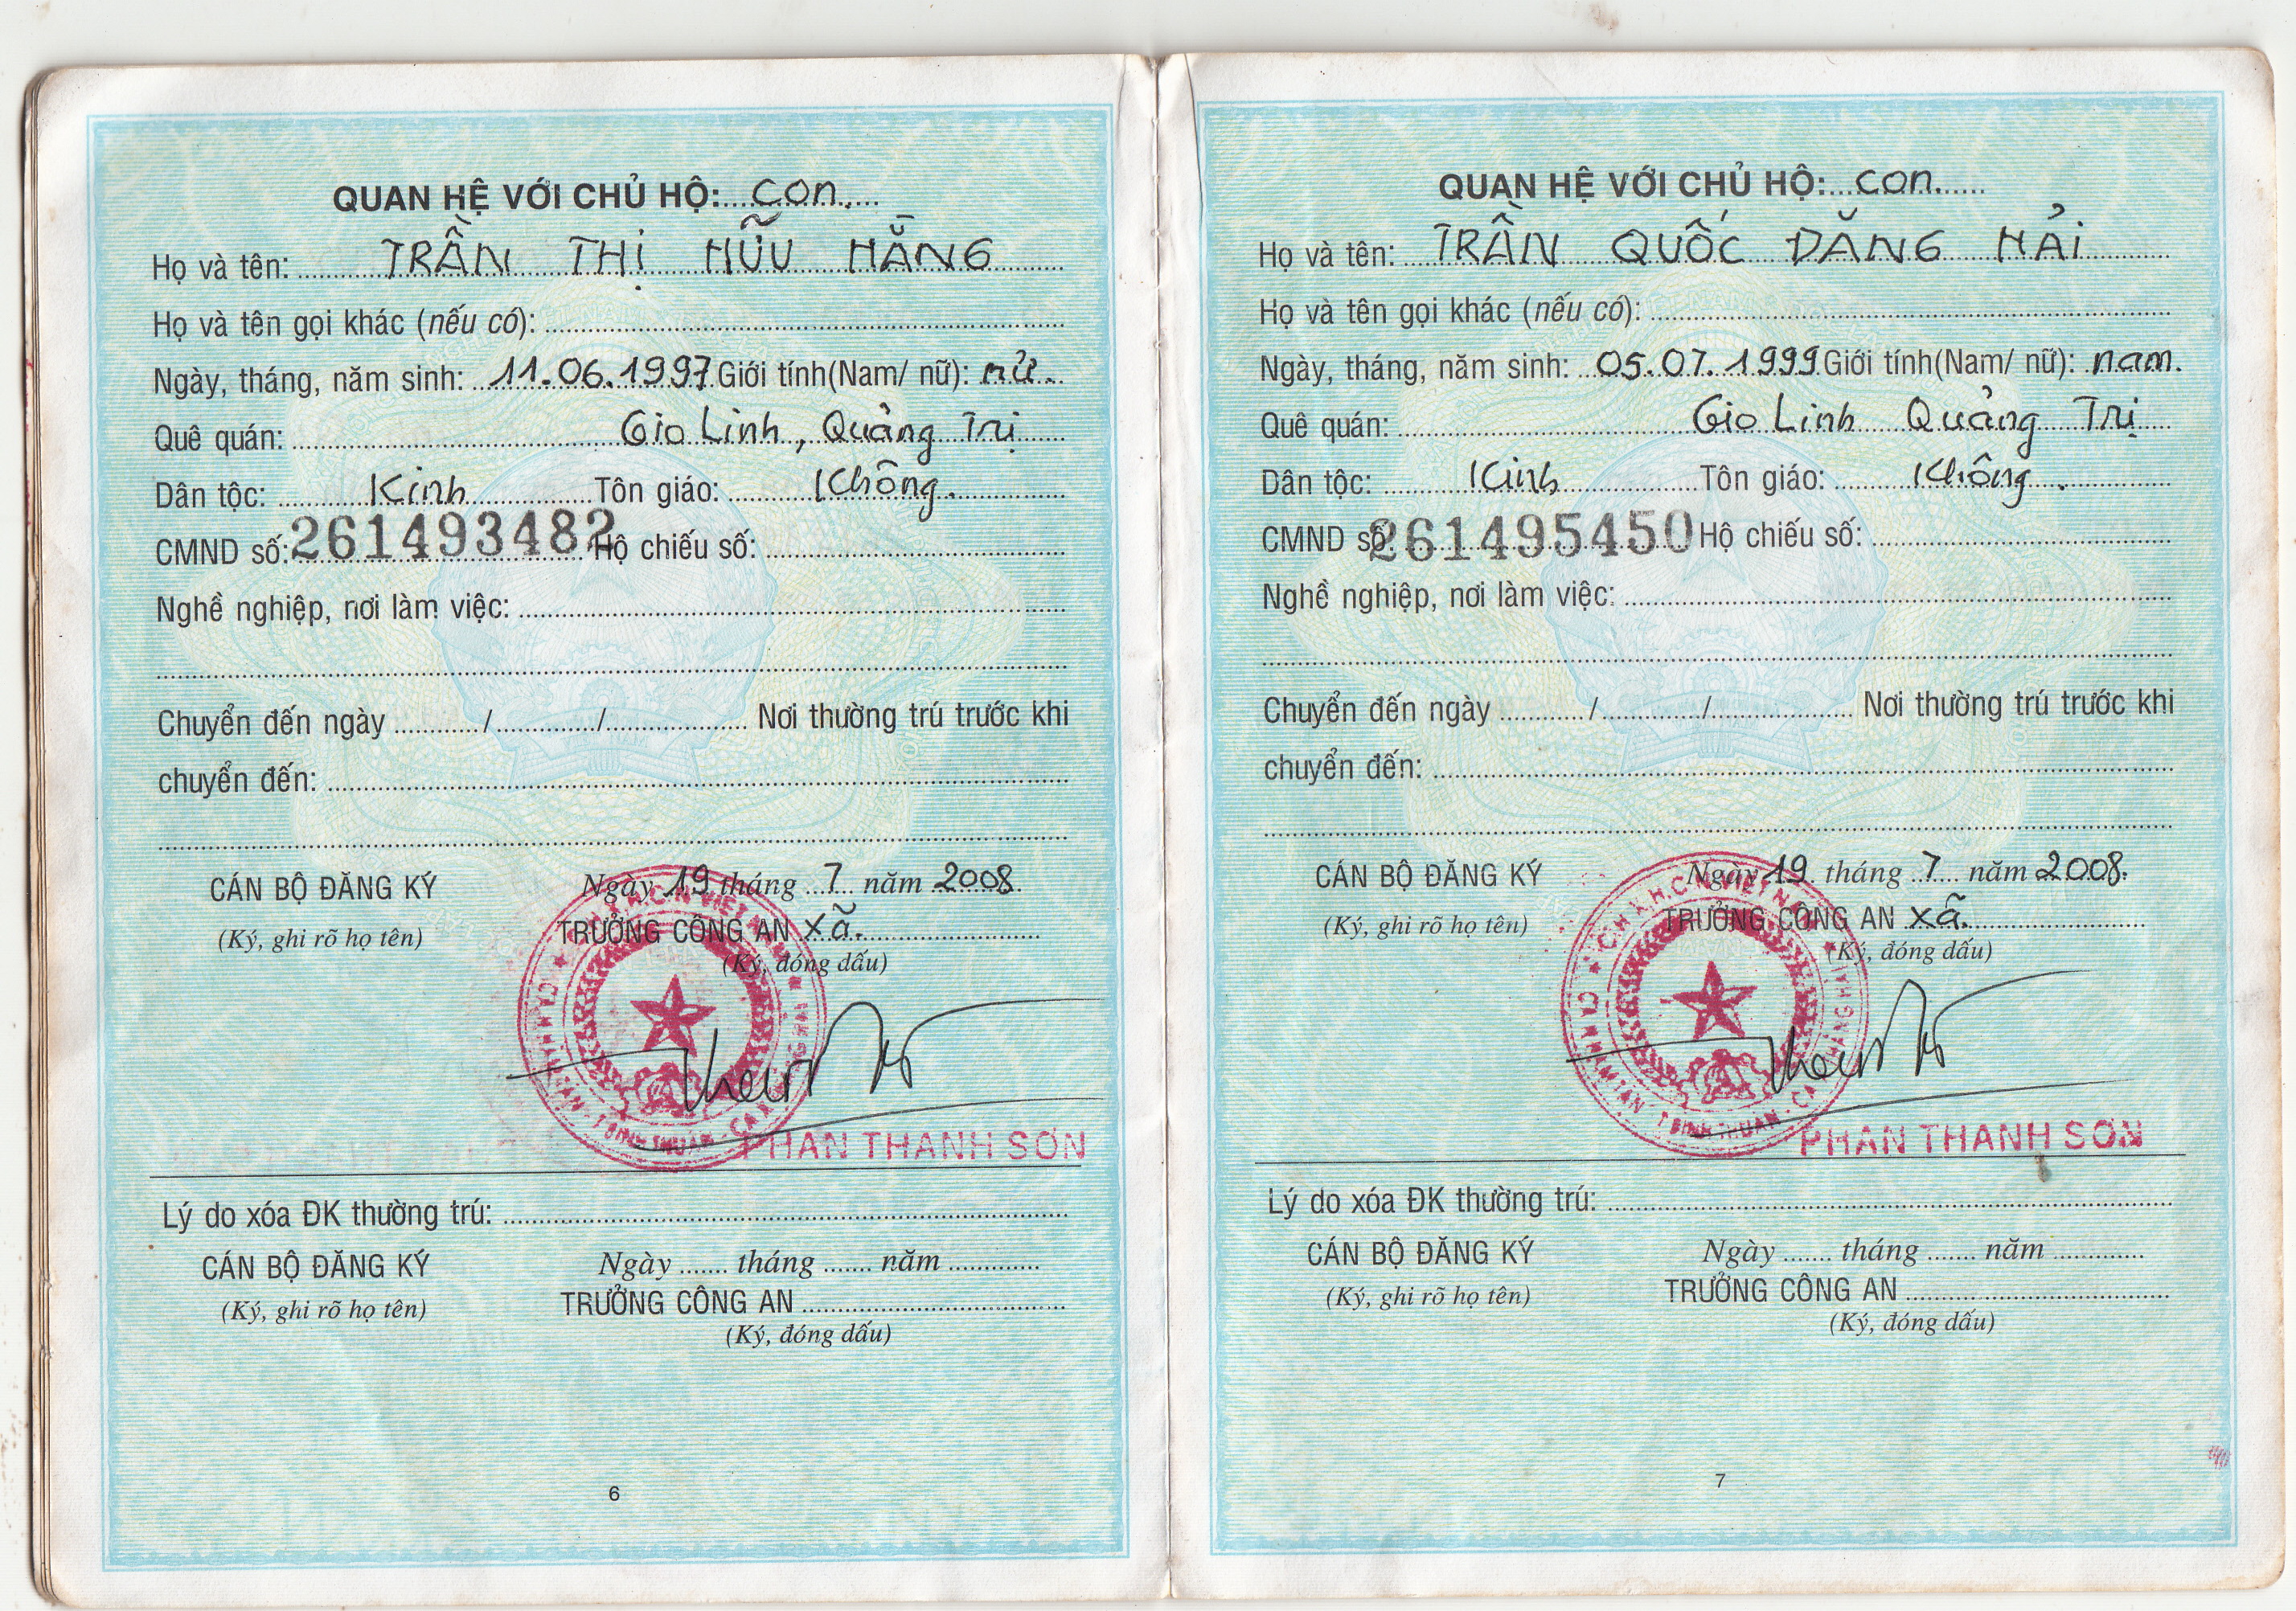 QUAN HỆ VỚI CHỦ HỘ: con.
Họ và tên: TRẦN THỊ HỮU HẰNG
Họ và tên gọi khác (nếu có):
Ngày, tháng, năm sinh: 11.06.1997 Giới tính(Nam/ nữ): nữ.
Quê quán: Gio Linh, Quảng Trị
Dân tộc: Kinh Tôn giáo: Không.
CMND số: 261493482 Hộ chiếu số:
Nghề nghiệp, nơi làm việc:
Chuyển đến ngày / / Nơi thường trú trước khi
chuyển đến:
CÁN BỘ ĐĂNG KÝ Ngày 19 tháng 7 năm 2008.
(Ký, ghi rõ họ tên) TRƯỞNG CÔNG AN xã.
(Ký, đóng dấu)
PHAN THANH SƠN
Lý do xóa ĐK thường trú:
CÁN BỘ ĐĂNG KÝ Ngày tháng năm
(Ký, ghi rõ họ tên) TRƯỞNG CÔNG AN
(Ký, đóng dấu)
6
QUAN HỆ VỚI CHỦ HỘ: con.
Họ và tên: TRẦN QUỐC ĐĂNG HẢI
Họ và tên gọi khác (nếu có):
Ngày, tháng, năm sinh: 05.07.1999 Giới tính(Nam/ nữ): nam.
Quê quán: Gio Linh Quảng Trị
Dân tộc: Kinh Tôn giáo: Không.
CMND số: 261495450 Hộ chiếu số:
Nghề nghiệp, nơi làm việc:
Chuyển đến ngày / / Nơi thường trú trước khi
chuyển đến:
CÁN BỘ ĐĂNG KÝ Ngày 19 tháng 7 năm 2008.
(Ký, ghi rõ họ tên) TRƯỞNG CÔNG AN xã.
(Ký, đóng dấu)
PHAN THANH SƠN
Lý do xóa ĐK thường trú:
CÁN BỘ ĐĂNG KÝ Ngày tháng năm
(Ký, ghi rõ họ tên) TRƯỞNG CÔNG AN
(Ký, đóng dấu)
7